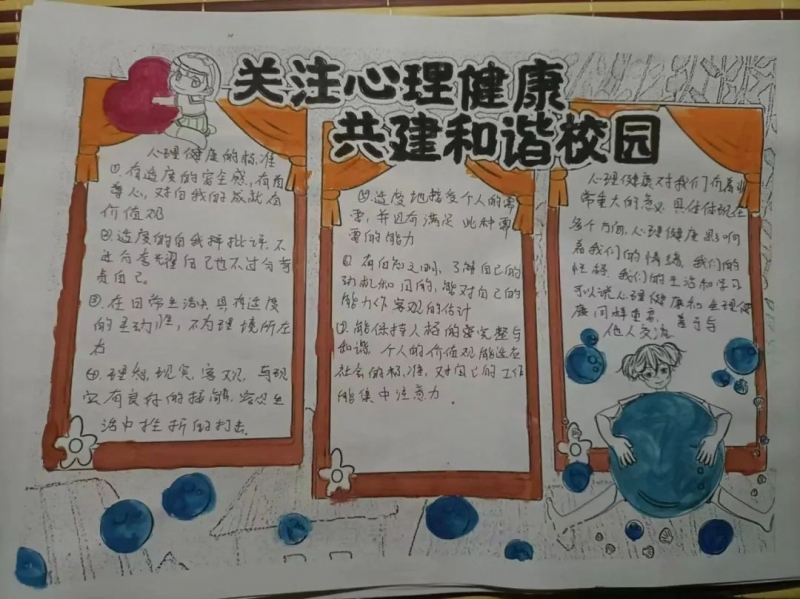 关注心理健康
共建和谐校园
心理健康的标准
①有适度的安全感,有自
尊心,对自我的成就有
价值观
②适度的自我批评,不
过分夸耀自己也不过分苛
责自己。
③在日常生活中,具有适度
的主动性,不为环境所左
右
④理想,现实,客观,与现
实有良好的接触,容忍生
活中挫折的打击。
适度地接受个人的需
要,并且有满足此种需
要的能力
有自知之明,了解自己的
动机和目的,能对自己的
能力作客观的估计
能保持人格的完整与
和谐,个人的价值观能适应
社会的标准,对自己的工作
能集中注意力。
心理健康对我们有着非
常重大的意义,具体体现在
多个方面,心理健康影响
着我们的情绪,我们的
性格,我们的生活和学习
可以说心理健康和生理健
康同样重要,善于与
他人交流